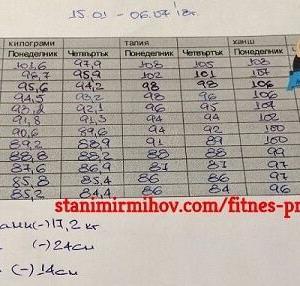 15.01 – 06.07 18г.
килограми талия ханш
Понеделник Четвъртък Понеделник Четвъртък Понеделник
101,6 97,9 108 105 108
98,7 95,9 102 101 107
95,6 94,2 98 98 106
94,5 93,2 98 96 106
93,2 92,1 96 95 104
91,8 91,3 94 94 102
90,6 89,6 94 92 100
89,2 88,9 91 89 100
88,8 88,2 88 88 99
87,6 86,9 87 87 97
85,8 85,4 86 86 97
85,2 84,4 86 84 96
stanimirmihov.com/fitnes-pr
(-) 17,2 кг
(-) 24см
(-) 14см